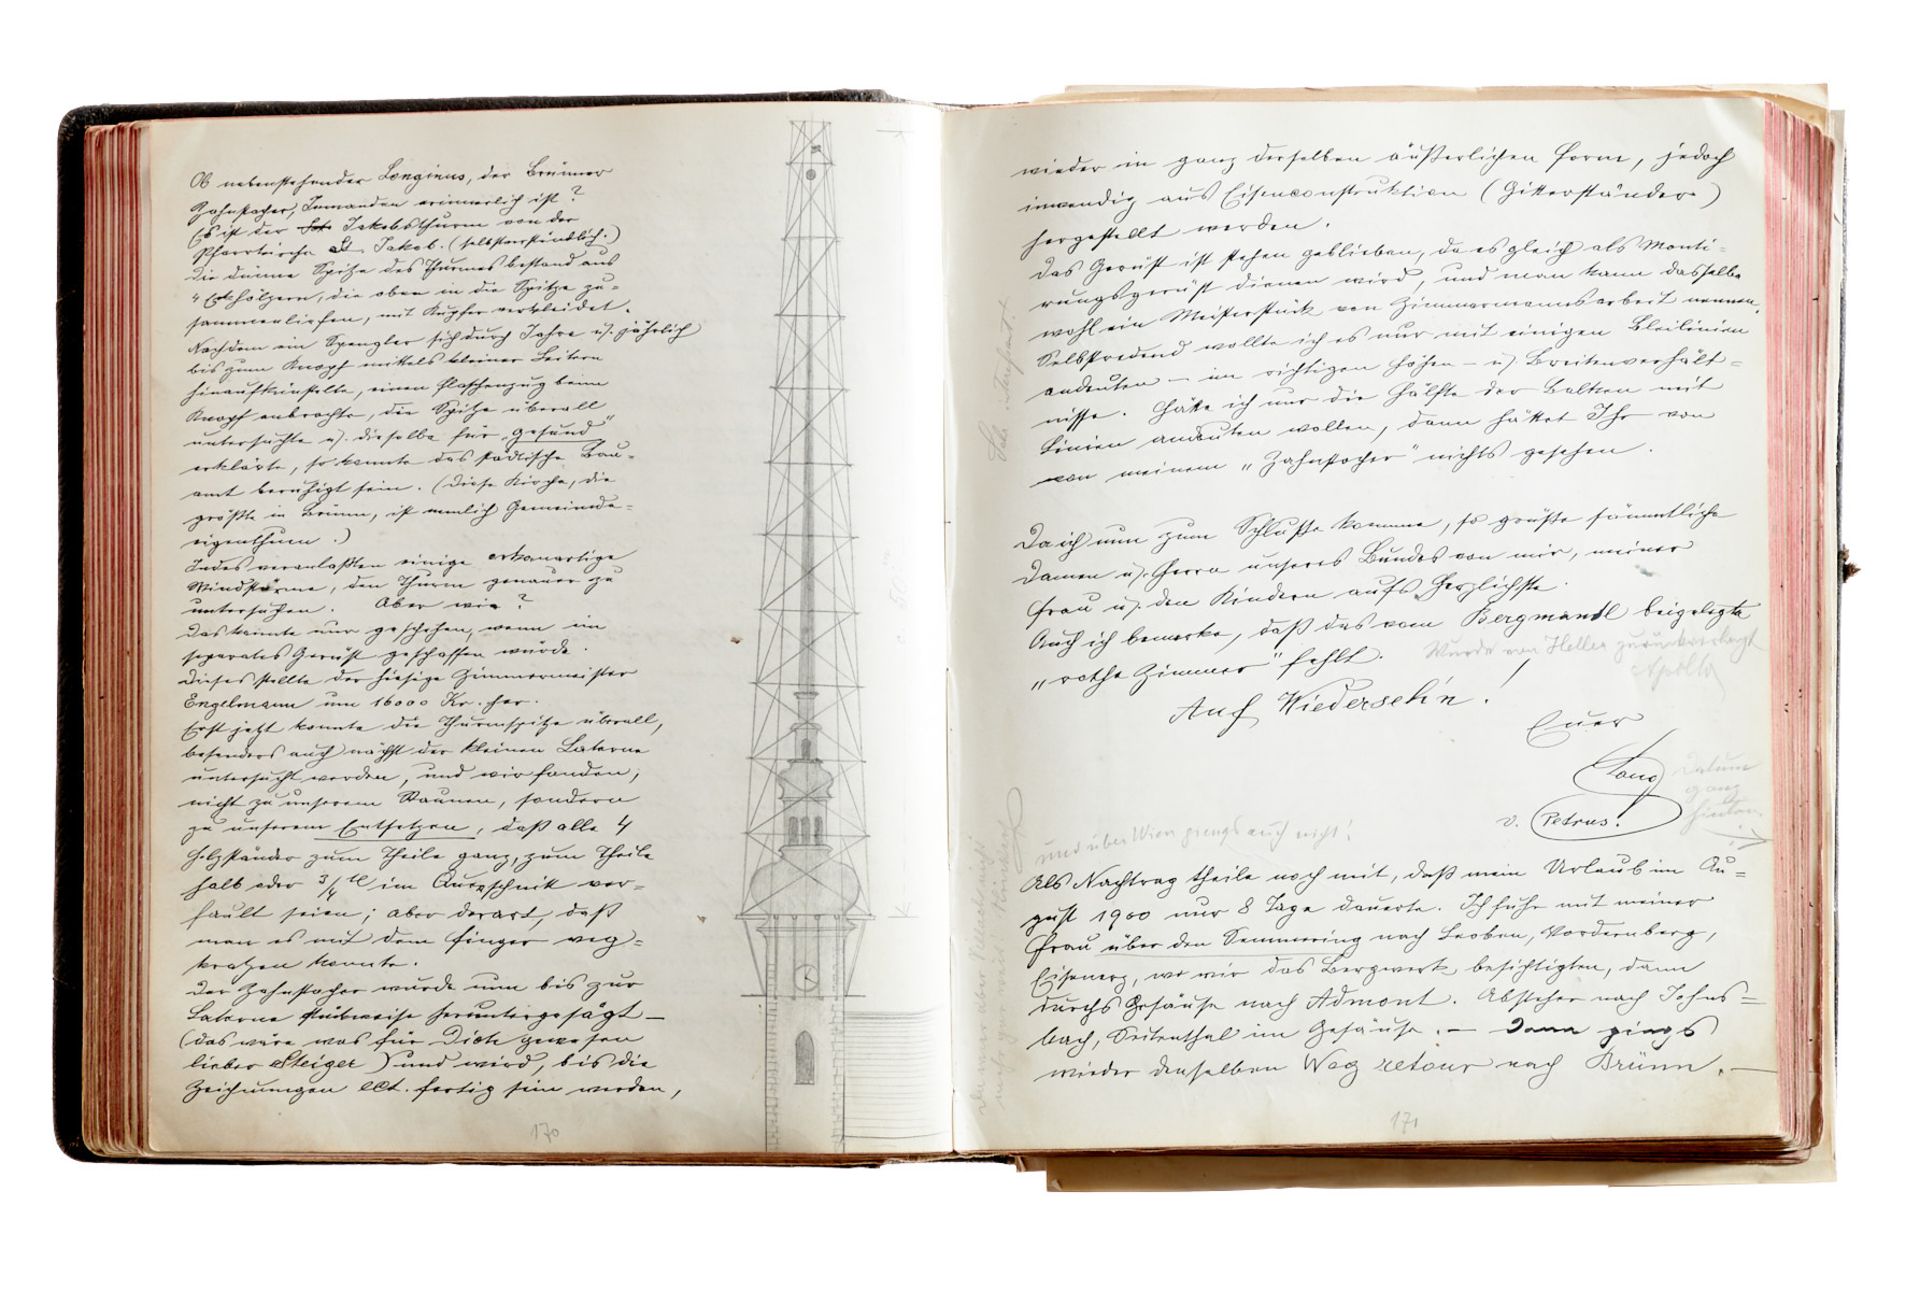 Ob nebenstehender Longinus, der Brünner
Zahnstocher, Jemanden erinnerlich ist?
(Es ist der Jakobsthurm von der
Pfarrkirche St. Jakob. (selbstverständlich.)
Die dünne Spitze des Thurmes bestand aus
4 Eckhölzern, die oben in die Spitze zu=
sammenliefen, mit Kupfer verkleidet.
Nachdem ein Spengler sich durch Jahre u. jährlich
bis zum Knopf mittels kleiner Leitern
hinaufkünstelte, einen Flaschenzug beim
Knopf anbrachte, die Spitze überall
untersuchte u. dieselbe für „gesund"
erklärte, so konnte das städtische Bau=
amt beruhigt sein. (Diese Kirche, die
größte in Brünn, ist nemlich Gemeinde=
eigenthum.)
Indes veranlaßten einige orkanartige
Windstürme, den Thurm genauer zu
untersuchen. Aber wie?
Das konnte nur geschehen, wenn ein
separates Gerüst geschaffen würde.
Dieses stellte der hiesige Zimmermeister
Engelmann um 16000 Kr. her.
Erst jetzt konnte die Thurmspitze überall,
besonders auch nächst der kleinen Laterne
untersucht werden, und wir fanden,
nicht zu unserem Staunen, sondern
zu unserem Entsetzen, daß alle 4
Holzständer zum Theile ganz, zum Theile
halb oder 3/4 tel im Querschnitt ver=
fault seien; aber derart, daß
man es mit dem Finger weg=
kratzen konnte.
Der Zahnstocher wurde nun bis zur
Laterne stückweise heruntergesägt —
(das wäre was für Dich gewesen
lieber Steiger) und wird, bis die
Zeichnungen ect. fertig sein werden,
170
wieder in ganz derselben äußerlichen Form, jedoch
inwendig aus Eisenconstruktion (Gitterständer)
hergestellt werden.
Das Gerüst ist stehen geblieben, da es gleich als Monti=
rungsgerüst dienen wird, und man kann dasselbe
wohl ein Meisterstück von Zimmermannsarbeit nennen.
Selbstredend wollte ich es nur mit einigen Bleilinien
andeuten — im richtigen Höhen- u. Breitenverhält=
nisse. Hätte ich nur die Hälfte der Balken mit
Linien andeuten wollen, dann hättet Ihr von
von meinem „Zahnstocher" nichts gesehen.
Da ich nun zum Schluße komme, so grüße sämmtliche
Damen u. Herrn unseres Bundes von mir, meiner
Frau u. den Kindern aufs Herzlichste.
Auch ich bemerke, daß das vom Bergmandl beigelegte
„rothe Zimmer" fehlt.
Wurde von Heller zurückverlangt
Auf Wiederseh'n!
Euer
v. Petrus.
Datum
ganz
hinten
und über Wien giengs auch nicht!
Als Nachtrag theile noch mit, daß mein Urlaub im Au=
gust 1900 nur 8 Tage dauerte. Ich fuhr mit meiner
Frau über den Semmering nach Leoben, Vordernberg,
Eisenerz, wo wir das Bergwerk besichtigten, dann
durchs Gesäuse nach Admont. Abstecher nach Johns=
bach, Seitenthal im Gesäuse. — Dann giengs
wieder denselben Weg retour nach Brünn. —
171